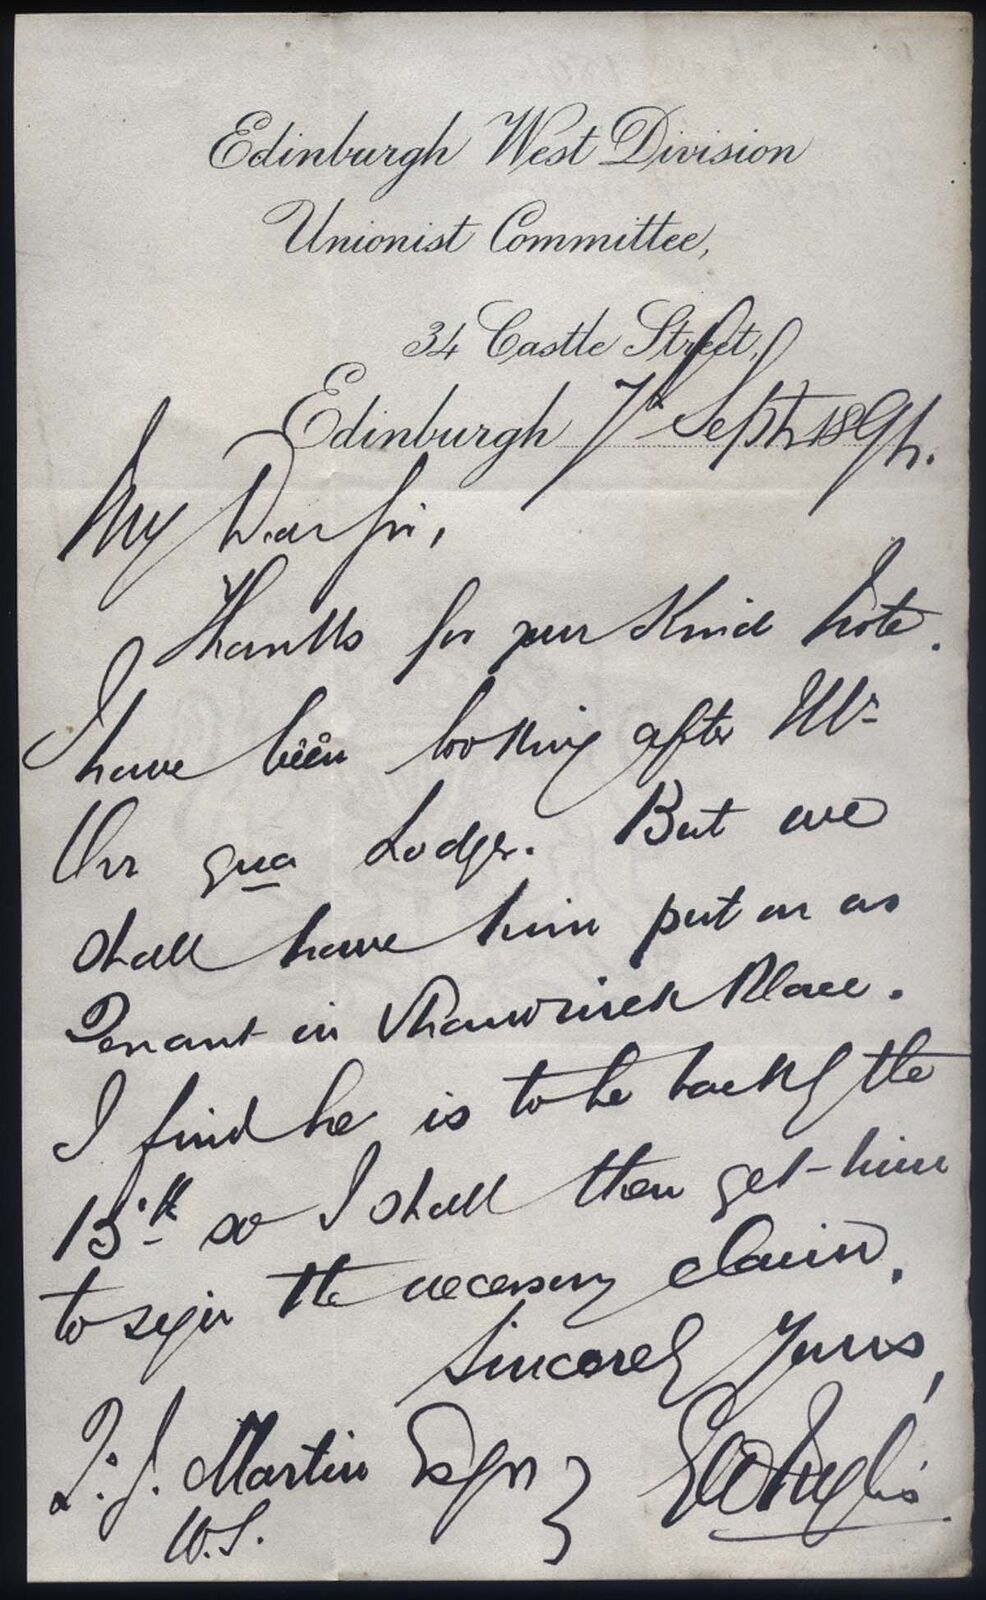 Edinburgh West Division
Unionist Committee,
34 Castle Street,
Edinburgh 7th Sept 1894.
My Dear Sir,
Thanks for your kind note.
I have been looking after Mr
Orr qua Lodger. But we
shall have him put on as
Tenant in Shandwick Place.
I find he is to be back by the
13th so I shall then get him
to sign the necessary claim.
Sincerely Yours,
T. J. Martin Esqr
W.S.